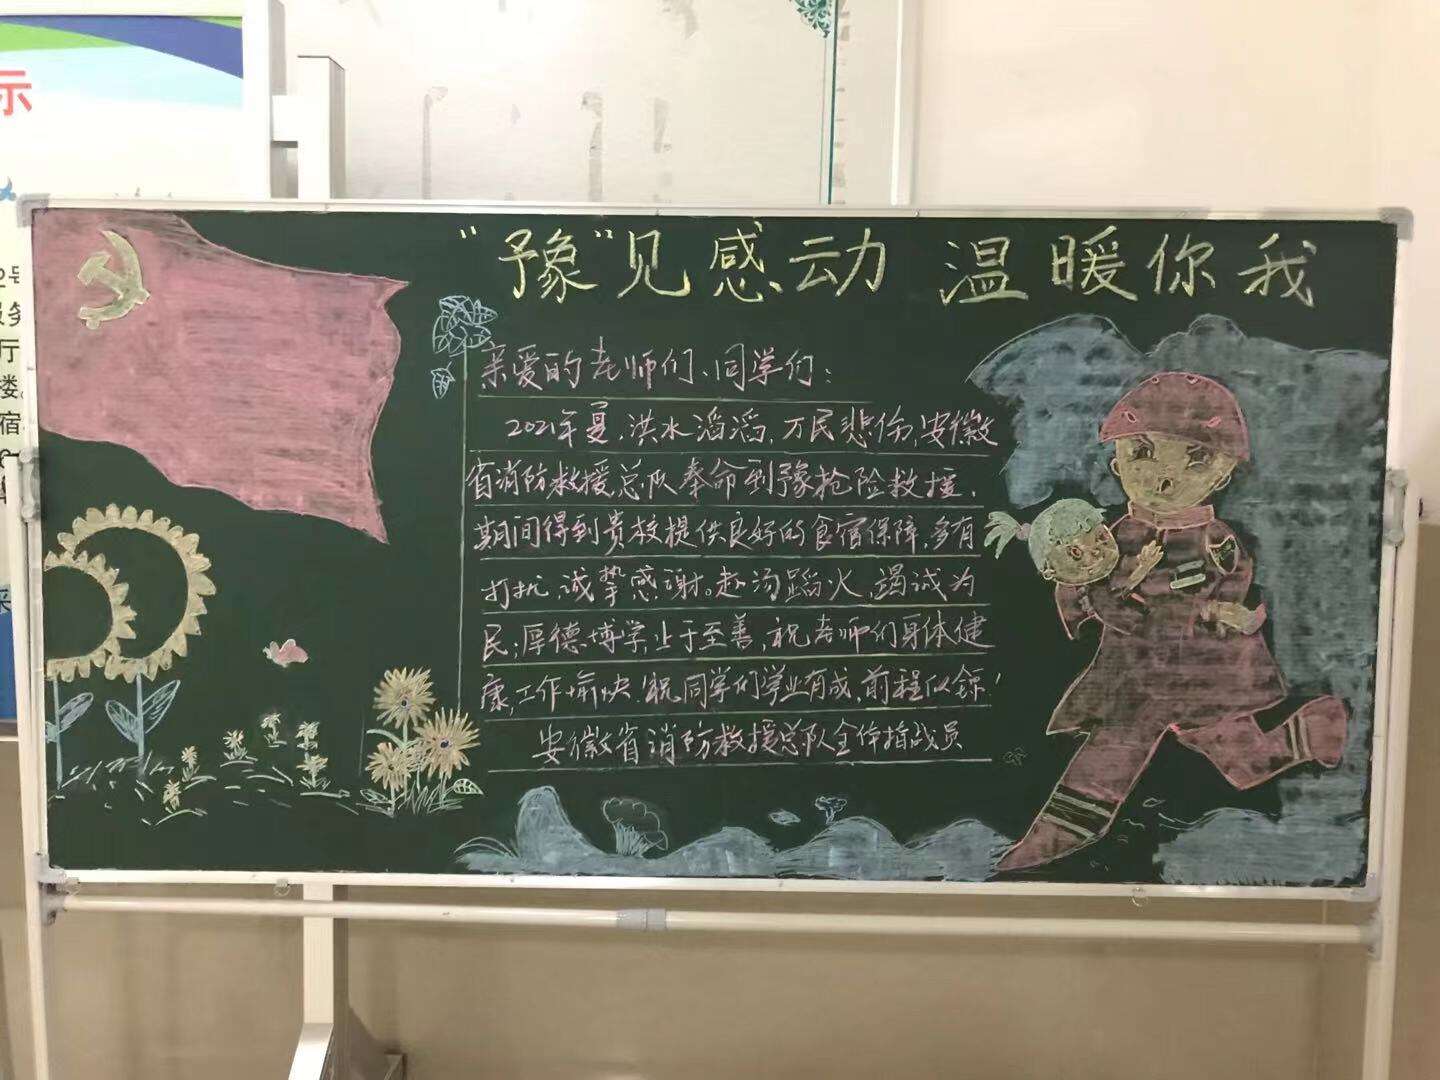 示
2号
服务
厅
楼。
宿
“豫”见感动 温暖你我
亲爱的老师们、同学们：
2021年夏，洪水滔滔，万民悲伤，安徽
省消防救援总队奉命到豫抢险救援，
期间得到贵校提供良好的食宿保障，多有
打扰，诚挚感谢。赴汤蹈火，竭诚为
民；厚德博学，止于至善，祝老师们身体健
康，工作愉快！祝同学们学业有成，前程似锦！
安徽省消防救援总队全体指战员